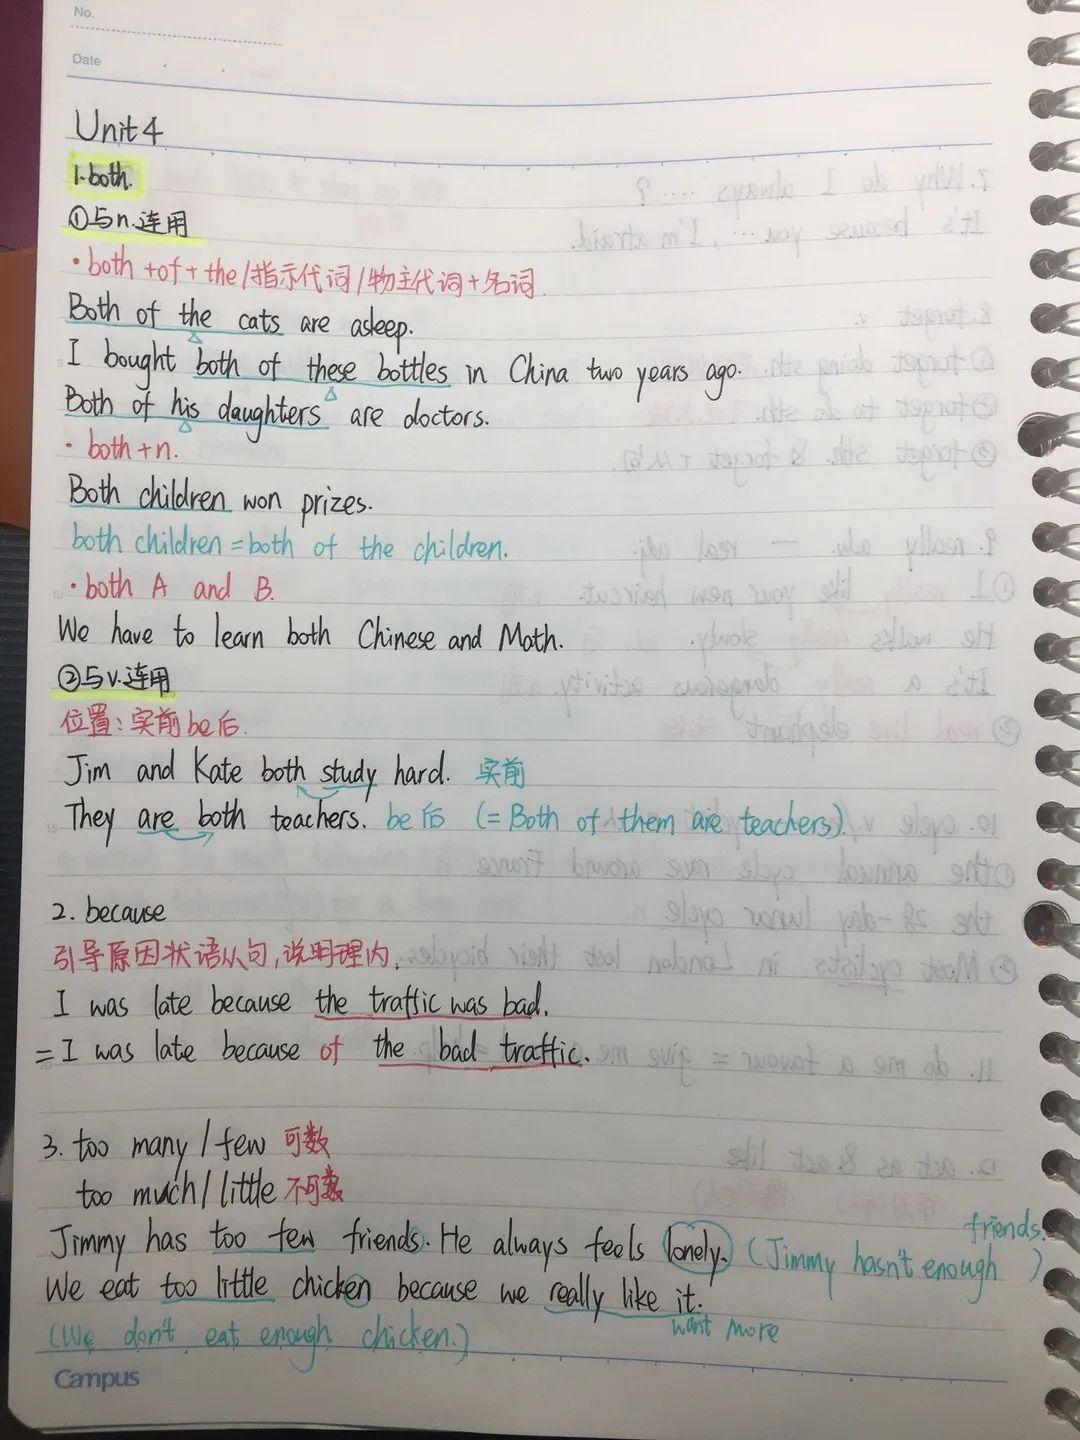 No.
Date
Unit 4
1. both.
①与n.连用
· both + of + the/指示代词/物主代词+名词.
Both of the cats are asleep.
I bought both of these bottles in China two years ago.
Both of his daughters are doctors.
· both+n.
Both children won prizes.
both children = both of the children.
· both A and B.
We have to learn both Chinese and Math.
②与v.连用
位置:实前be后.
Jim and Kate both study hard. 实前
They are both teachers. be后 (= Both of them are teachers).
2. because
引导原因状语从句,说明理由.
I was late because the traffic was bad.
= I was late because of the bad traffic.
3. too many / few 可数
too much / little 不可数
Jimmy has too few friends. He always feels lonely. (Jimmy hasn't enough friends.)
We eat too little chicken because we really like it.
want more
(We don't eat enough chicken.)
Campus